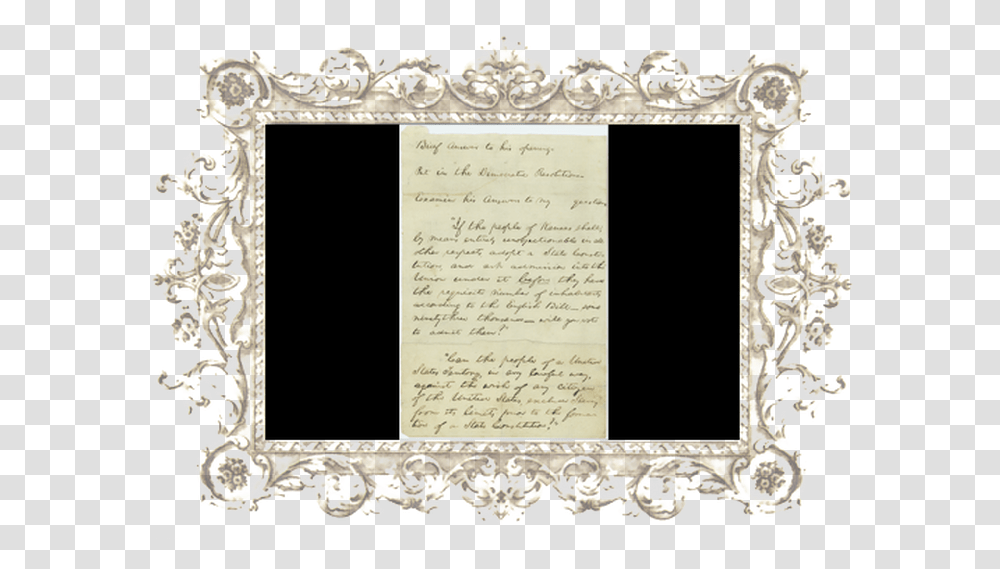 Brief answer to his opening.
Put in the Democratic Resolutions
Examine his answers to my questions
"If the people of Kansas shall,
by means entirely unobjectionable in all
other respects, adopt a State Consti-
tution, and ask admission into the
Union under it before they have
the requisite number of inhabitants
according to the English Bill — some
ninetythree thousand — will you vote
to admit them?"
"Can the people of a United
States Territory, in any lawful way,
against the wish of any citizen
of the United States, exclude slavery
from its limits prior to the forma-
tion of a State Constitution?"